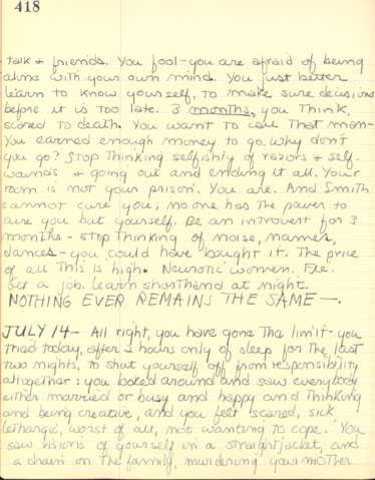 418
talk & friends. You fool - you are afraid of being
alone with your own mind. You just better
learn to know yourself, to make sure decisions
before it is too late. 3 months, you think,
scared to death. You want to call that man -
You earned enough money to go. Why don't
you go? Stop thinking selfishly of razors & self-
wounds & going out and ending it all. Your
room is not your prison. You are. And Smith
cannot cure you; no one has the power to
cure you but yourself. Be an introvert for 3
months - stop thinking of noise, names,
dances - you could have bought it. The price
of all this is high. Neurotic women. Fie.
Get a job. Learn shorthand at night.
NOTHING EVER REMAINS THE SAME —.
JULY 14 - All right, you have gone the limit - you
tried today, after 2 hours only of sleep for the last
two nights, to shut yourself off from responsibility
altogether: you looked around and saw everybody
either married or busy and happy and thinking
and being creative, and you felt scared, sick
lethargic, worst of all, not wanting to cope. You
saw visions of yourself in a straightjacket, and
a drain on the family, murdering your mother